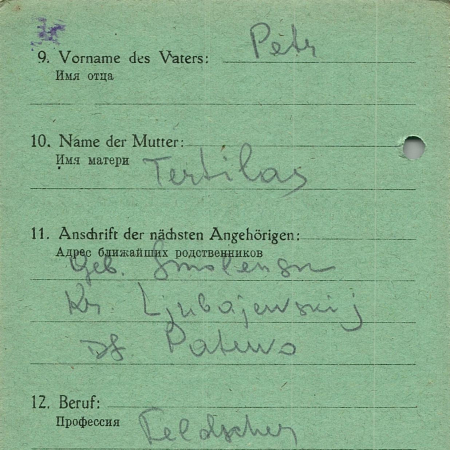 9. Vorname des Vaters: Pětr
Имя отца
10. Name der Mutter:
Имя матери Tertilas
11. Anschrift der nächsten Angehörigen:
Адрес ближайших родственников
Geb. Smolensk
Kr. Ljubajewskij
Df.
12. Beruf:
Профессия Feldscher